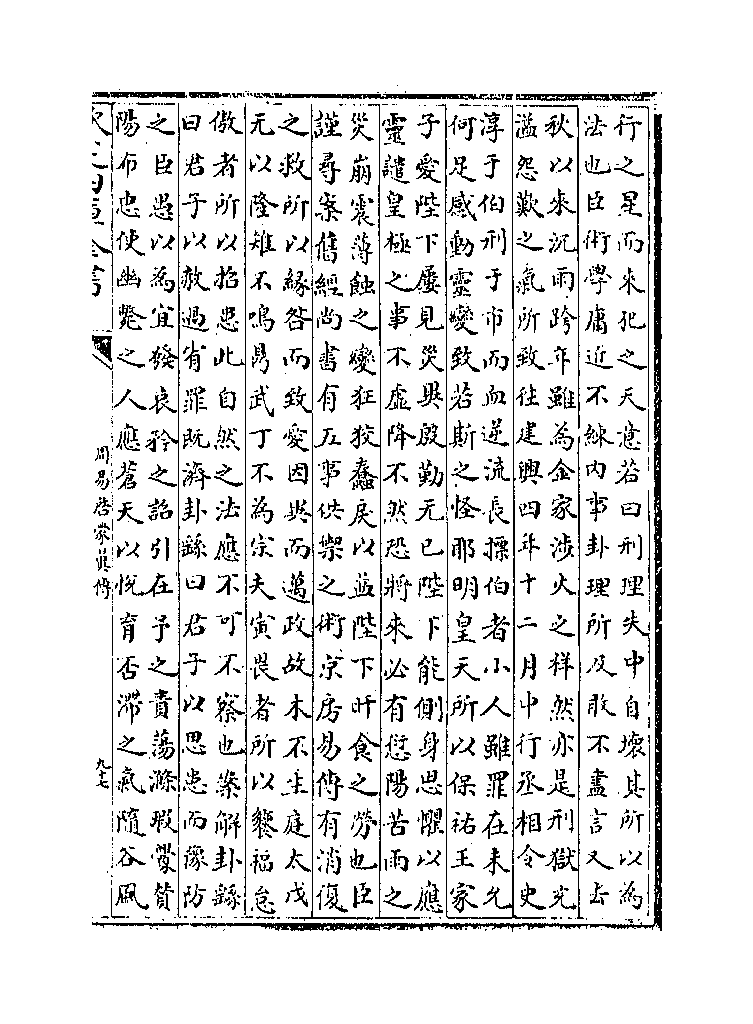 行之星而來犯之天意若曰刑理失中自壞其所以為
法也臣術學庸近不練内事卦理所及敢不盡言又去
秋以來沉雨跨年雖為金家涉火之祥然亦是刑獄充
溢怨歎之氣所致往建興四年十二月中行丞相令史
淳于伯刑于市而血逆流長摽伯者小人雖罪在未允
何足感動靈變致若斯之怪耶明皇天所以保祐王家
子愛陛下屢見災異殷勤无已陛下能側身思懼以應
靈譴皇極之事不虛降不然恐將來必有愆陽苦雨之
災崩震薄蝕之變狂狡蠢戾以益陛下旰食之勞也臣
謹尋案舊經尚書有五事供禦之術京房易傳有消復
之救所以縁咎而致愛因異而邁政故木不生庭太戊
无以隆雉不鳴鼎武丁不為宗夫寅畏者所以饗福怠
傲者所以招患此自然之法應不可不察也案解卦繇
曰君子以赦過宥罪既濟卦繇曰君子以思患而豫防
之臣愚以為宜發哀矜之詔引在予之責蕩滌瑕釁贊
陽布忠使幽斃之人應蒼天以悅育否滯之氣隨谷風
欽定四庫全書
周易啓蒙翼傳
九十七